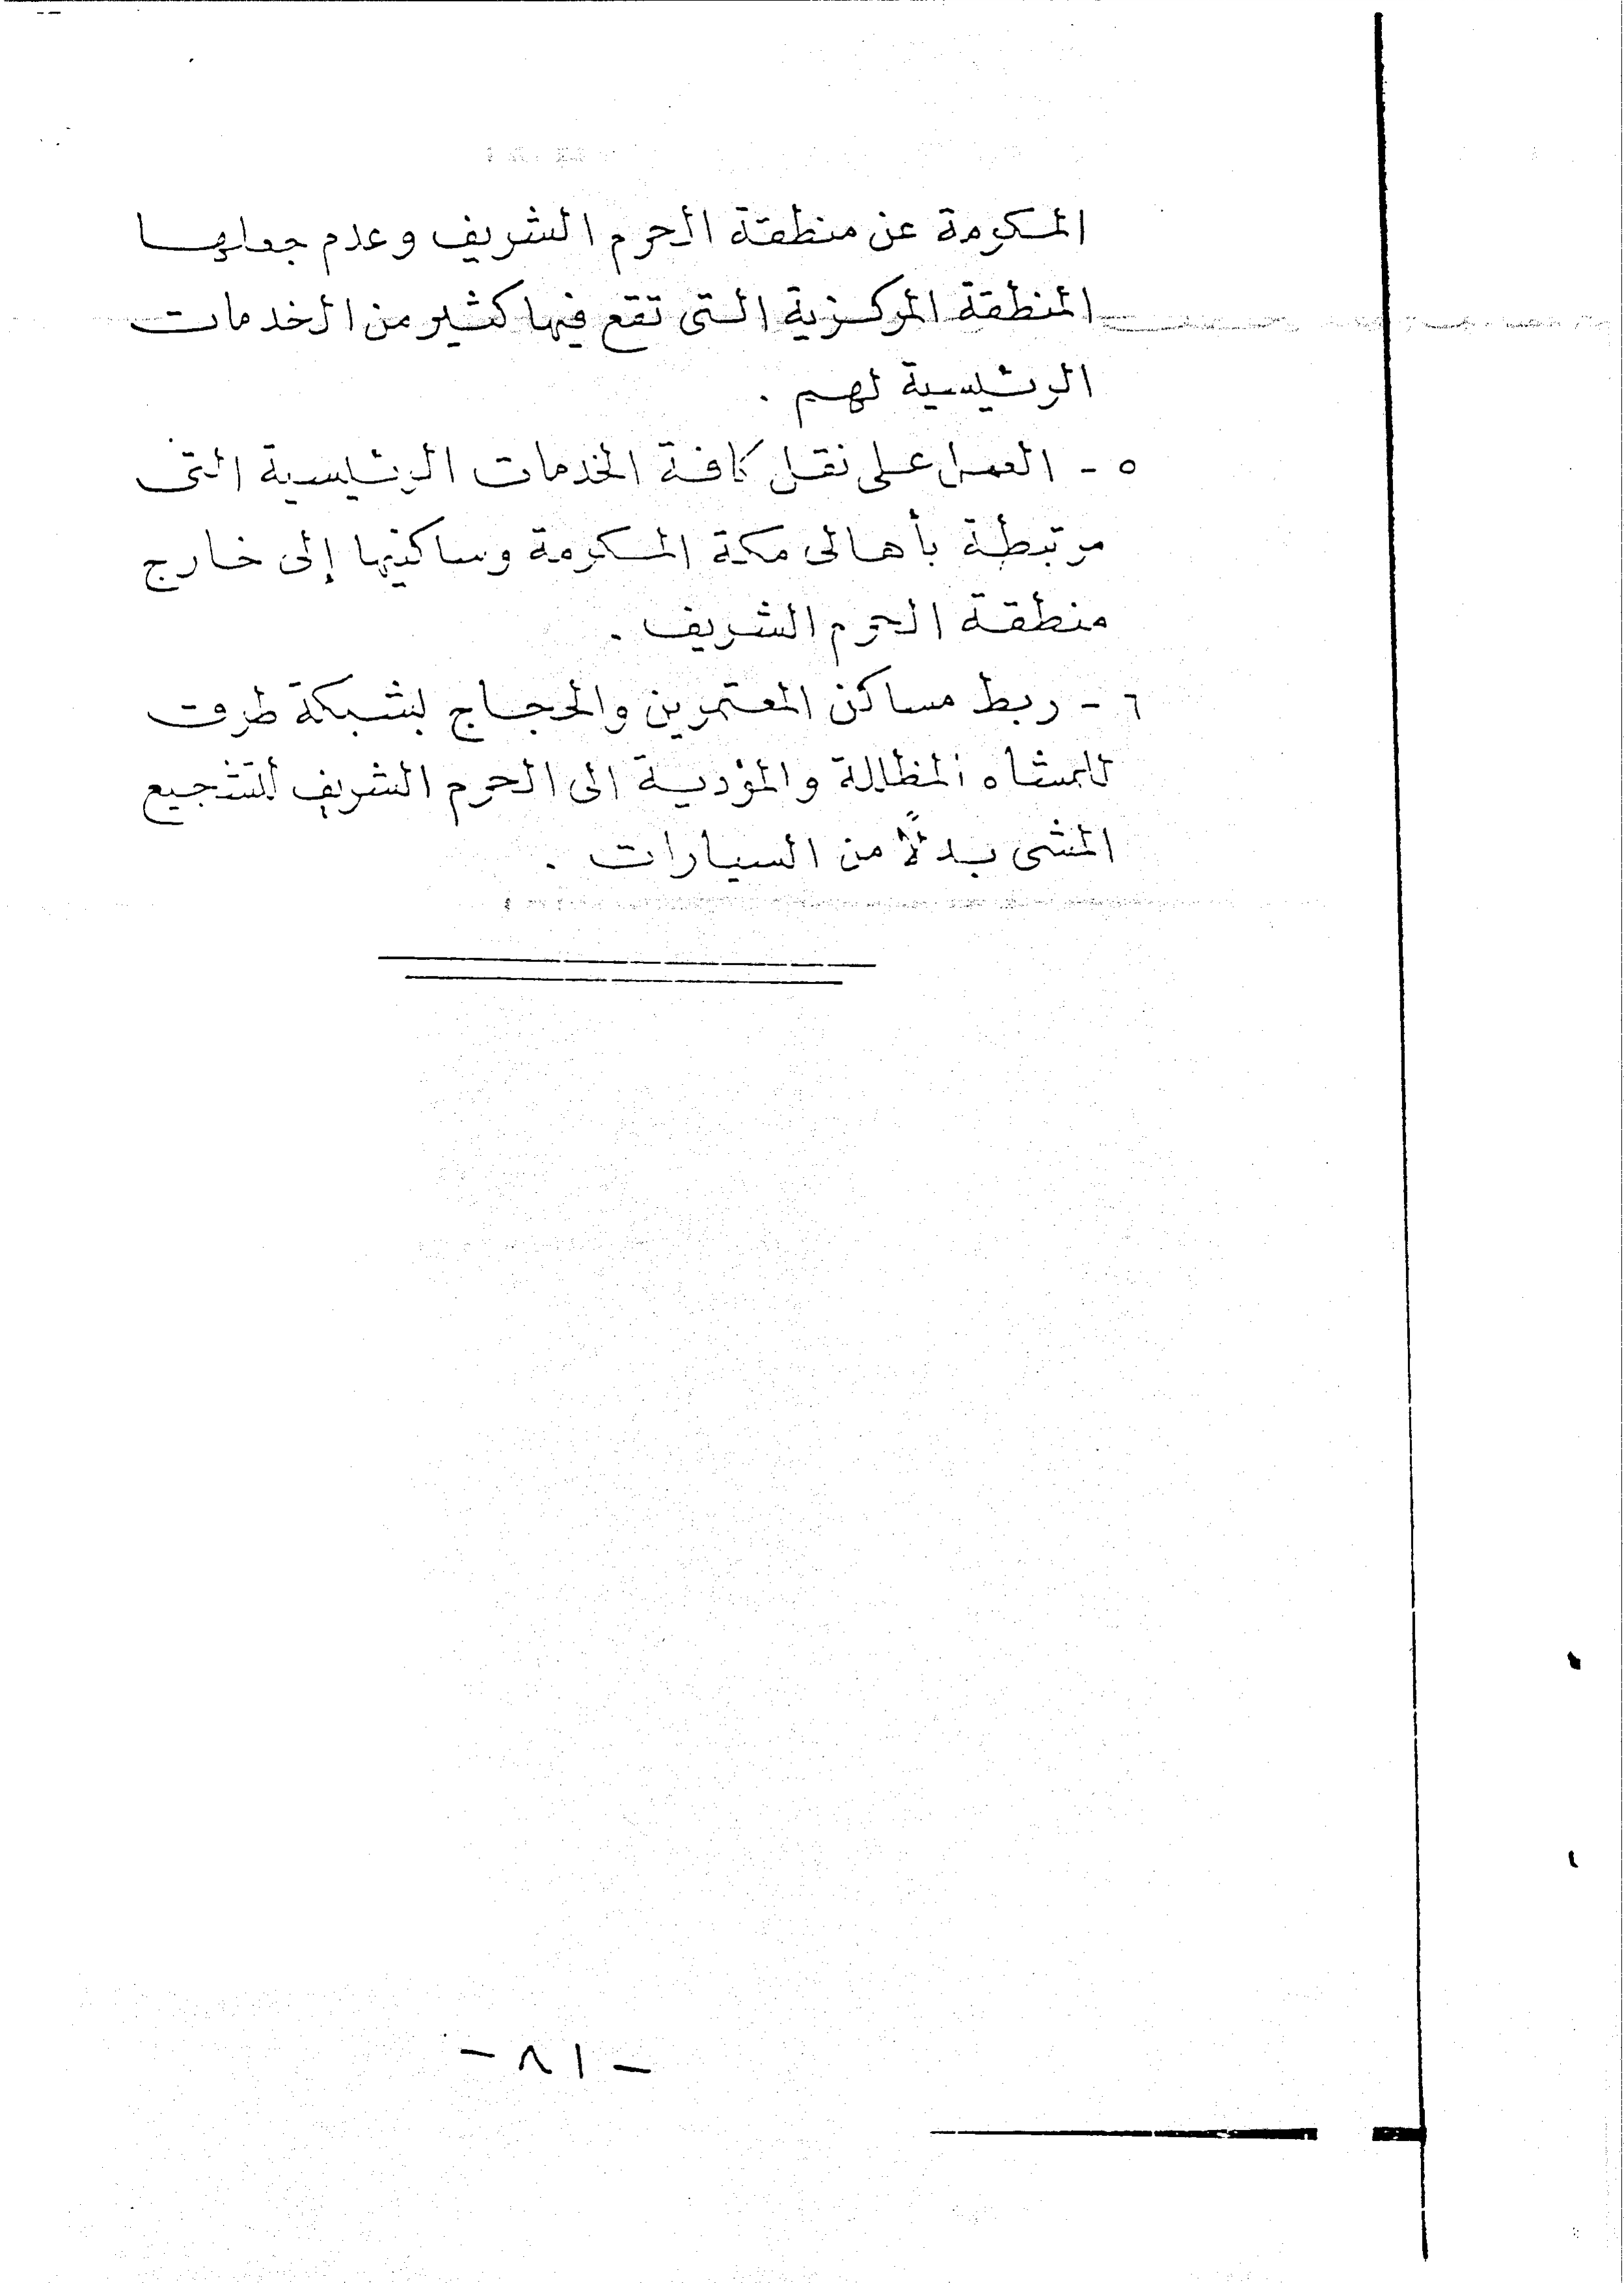 المكرمة عن منطقة الحرم الشريف وعدم جعلها
المنطقة المركزية التى تقع فيها كثير من الخدمات
الرئيسية لهم .
٥ - العمل على نقل كافة الخدمات الرئيسية التى
مرتبطة بأهالى مكة المكرمة وساكنيها إلى خارج
منطقة الحرم الشريف .
٦ - ربط مساكن المعتمرين والحجاج بشبكة طرق
للمشاه المظللة والمؤدية الى الحرم الشريف لتشجيع
المشى بدلًا من السيارات .
- ٨١ -